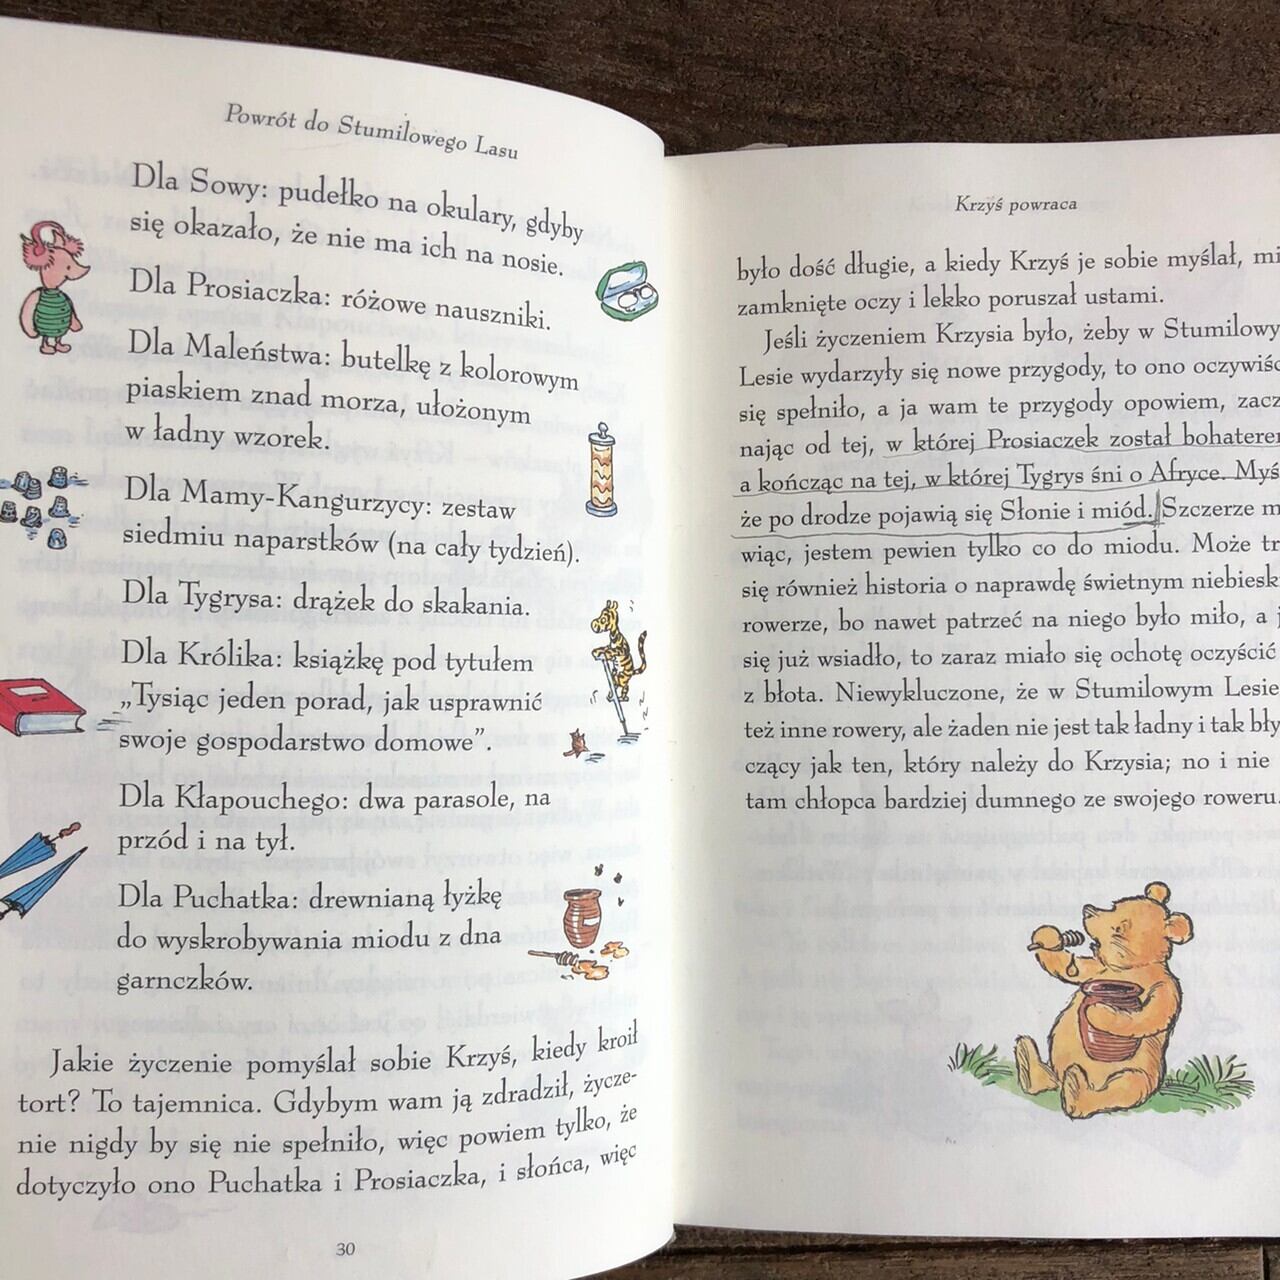 Powrót do Stumilowego Lasu
Dla Sowy: pudełko na okulary, gdyby
się okazało, że nie ma ich na nosie.
Dla Prosiaczka: różowe nauszniki.
Dla Maleństwa: butelkę z kolorowym
piaskiem znad morza, ułożonym
w ładny wzorek.
Dla Mamy-Kangurzycy: zestaw
siedmiu naparstków (na cały tydzień).
Dla Tygrysa: drążek do skakania.
Dla Królika: książkę pod tytułem
„Tysiąc jeden porad, jak usprawnić
swoje gospodarstwo domowe”.
Dla Kłapouchego: dwa parasole, na
przód i na tył.
Dla Puchatka: drewnianą łyżkę
do wyskrobywania miodu z dna
garnczków.
Jakie życzenie pomyślał sobie Krzyś, kiedy kroił
tort? To tajemnica. Gdybym wam ją zdradził, życze-
nie nigdy by się nie spełniło, więc powiem tylko, że
dotyczyło ono Puchatka i Prosiaczka, i słońca, więc
30
Krzyś powraca
było dość długie, a kiedy Krzyś je sobie myślał, mi
zamknięte oczy i lekko poruszał ustami.
Jeśli życzeniem Krzysia było, żeby w Stumilowy
Lesie wydarzyły się nowe przygody, to ono oczywiśc
się spełniło, a ja wam te przygody opowiem, zacz
nając od tej, w której Prosiaczek został bohatere
a kończąc na tej, w której Tygrys śni o Afryce. Myś
że po drodze pojawią się Słonie i miód. Szczerze m
wiąc, jestem pewien tylko co do miodu. Może tr
się również historia o naprawdę świetnym niebiesk
rowerze, bo nawet patrzeć na niego było miło, a j
się już wsiadło, to zaraz miało się ochotę oczyścić
z błota. Niewykluczone, że w Stumilowym Lesie
też inne rowery, ale żaden nie jest tak ładny i tak bły
czący jak ten, który należy do Krzysia; no i nie
tam chłopca bardziej dumnego ze swojego roweru.